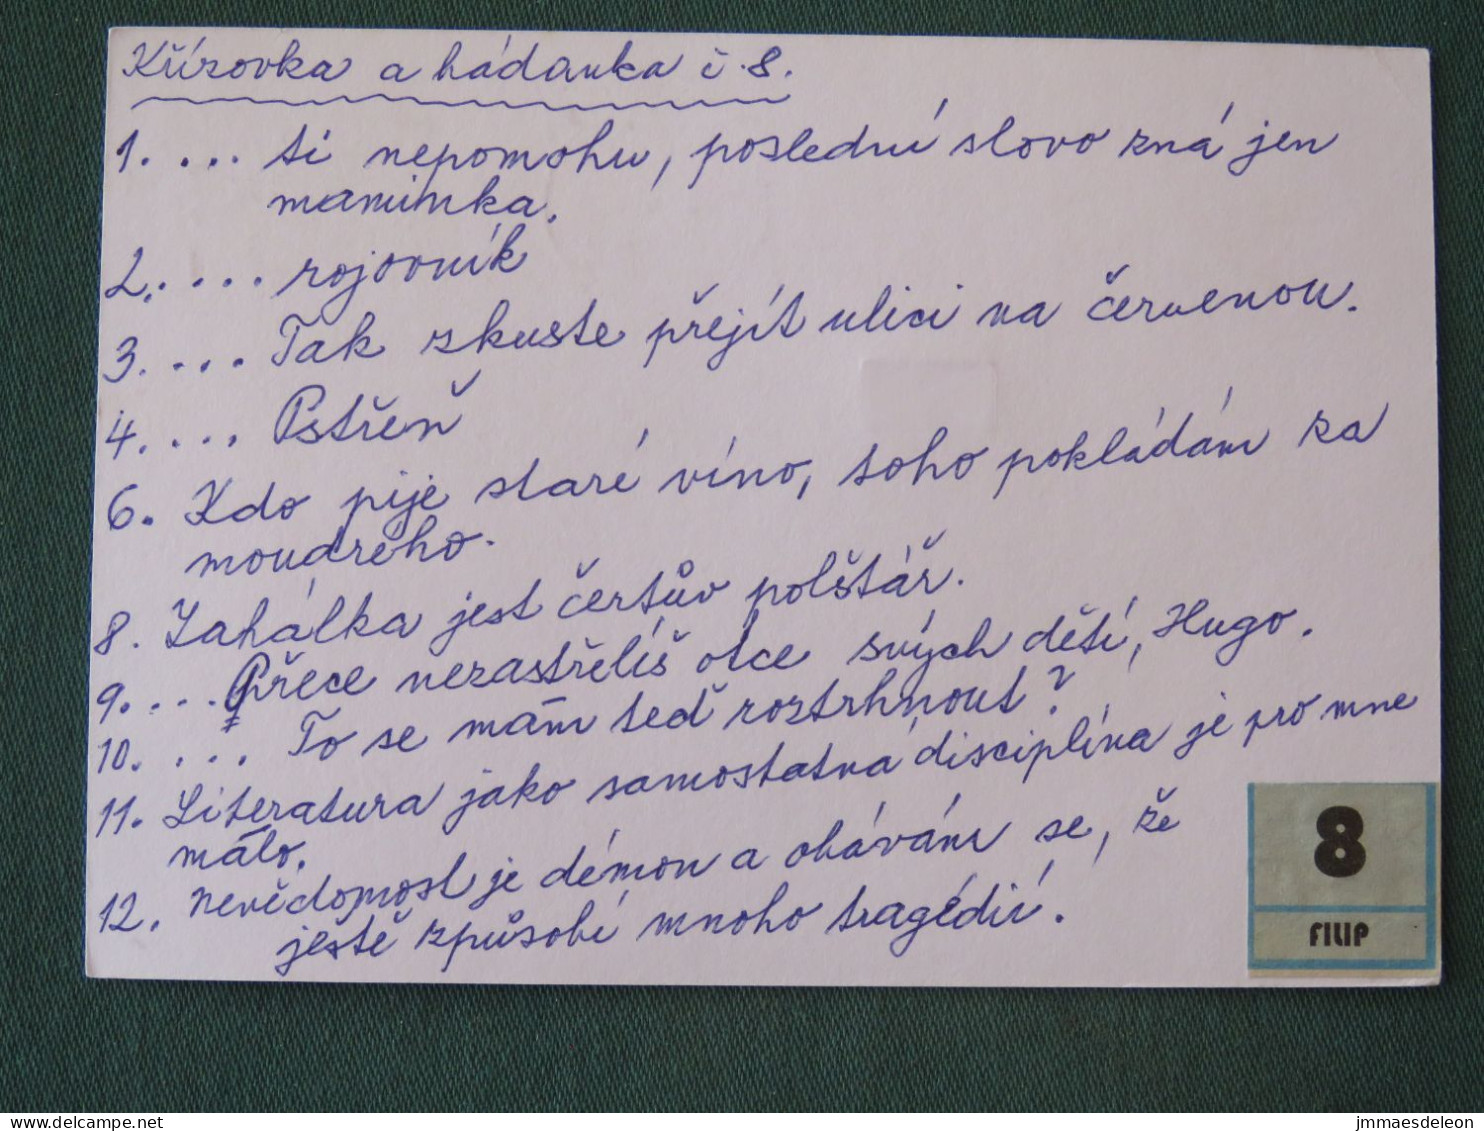 Křížovka a hádanka č.8.
1. ... ti nepomohu, poslední slovo zná jen
maminka.
2. ... rojovník
3. ... Tak zkuste přejít ulici na červenou.
4. ... Pstřeň
6. Kdo pije staré víno, toho pokládám za
moudrého.
8. Zahálka jest čertův polštář.
9. ... Přece nezastřelíš otce svých dětí, Hugo.
10. ... To se mám teď roztrhnout?
11. Literatura jako samostatná disciplína je pro mne
málo.
12. Nevědomost je démon a obávám se, že
ještě způsobí mnoho tragédií.
8
FILIP
delcampe.net
jmmaesdeleon